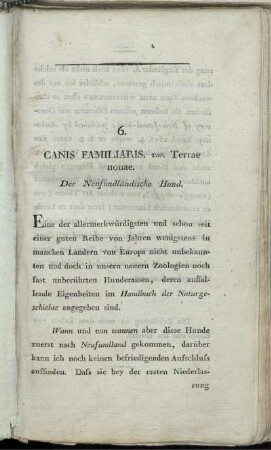 6.
CANIS FAMILIARIS. var. Terrae
nouae.
Der Neufundländische Hund.
Eine der allermerkwürdigsten und schon seit
einer guten Reihe von Jahren wenigstens in
manchen Ländern von Europa nicht unbekann-
ten und doch in unsern neuern Zoologien noch
fast unberührten Hunderassen, deren auffal-
lende Eigenheiten im Handbuch der Naturge-
schichte angegeben sind.
Wann und von wannen aber diese Hunde
zuerst nach Neufundland gekommen, darüber
kann ich noch keinen befriedigenden Aufschluss
auffinden. Dass sie bey der ersten Niederlas-
sung